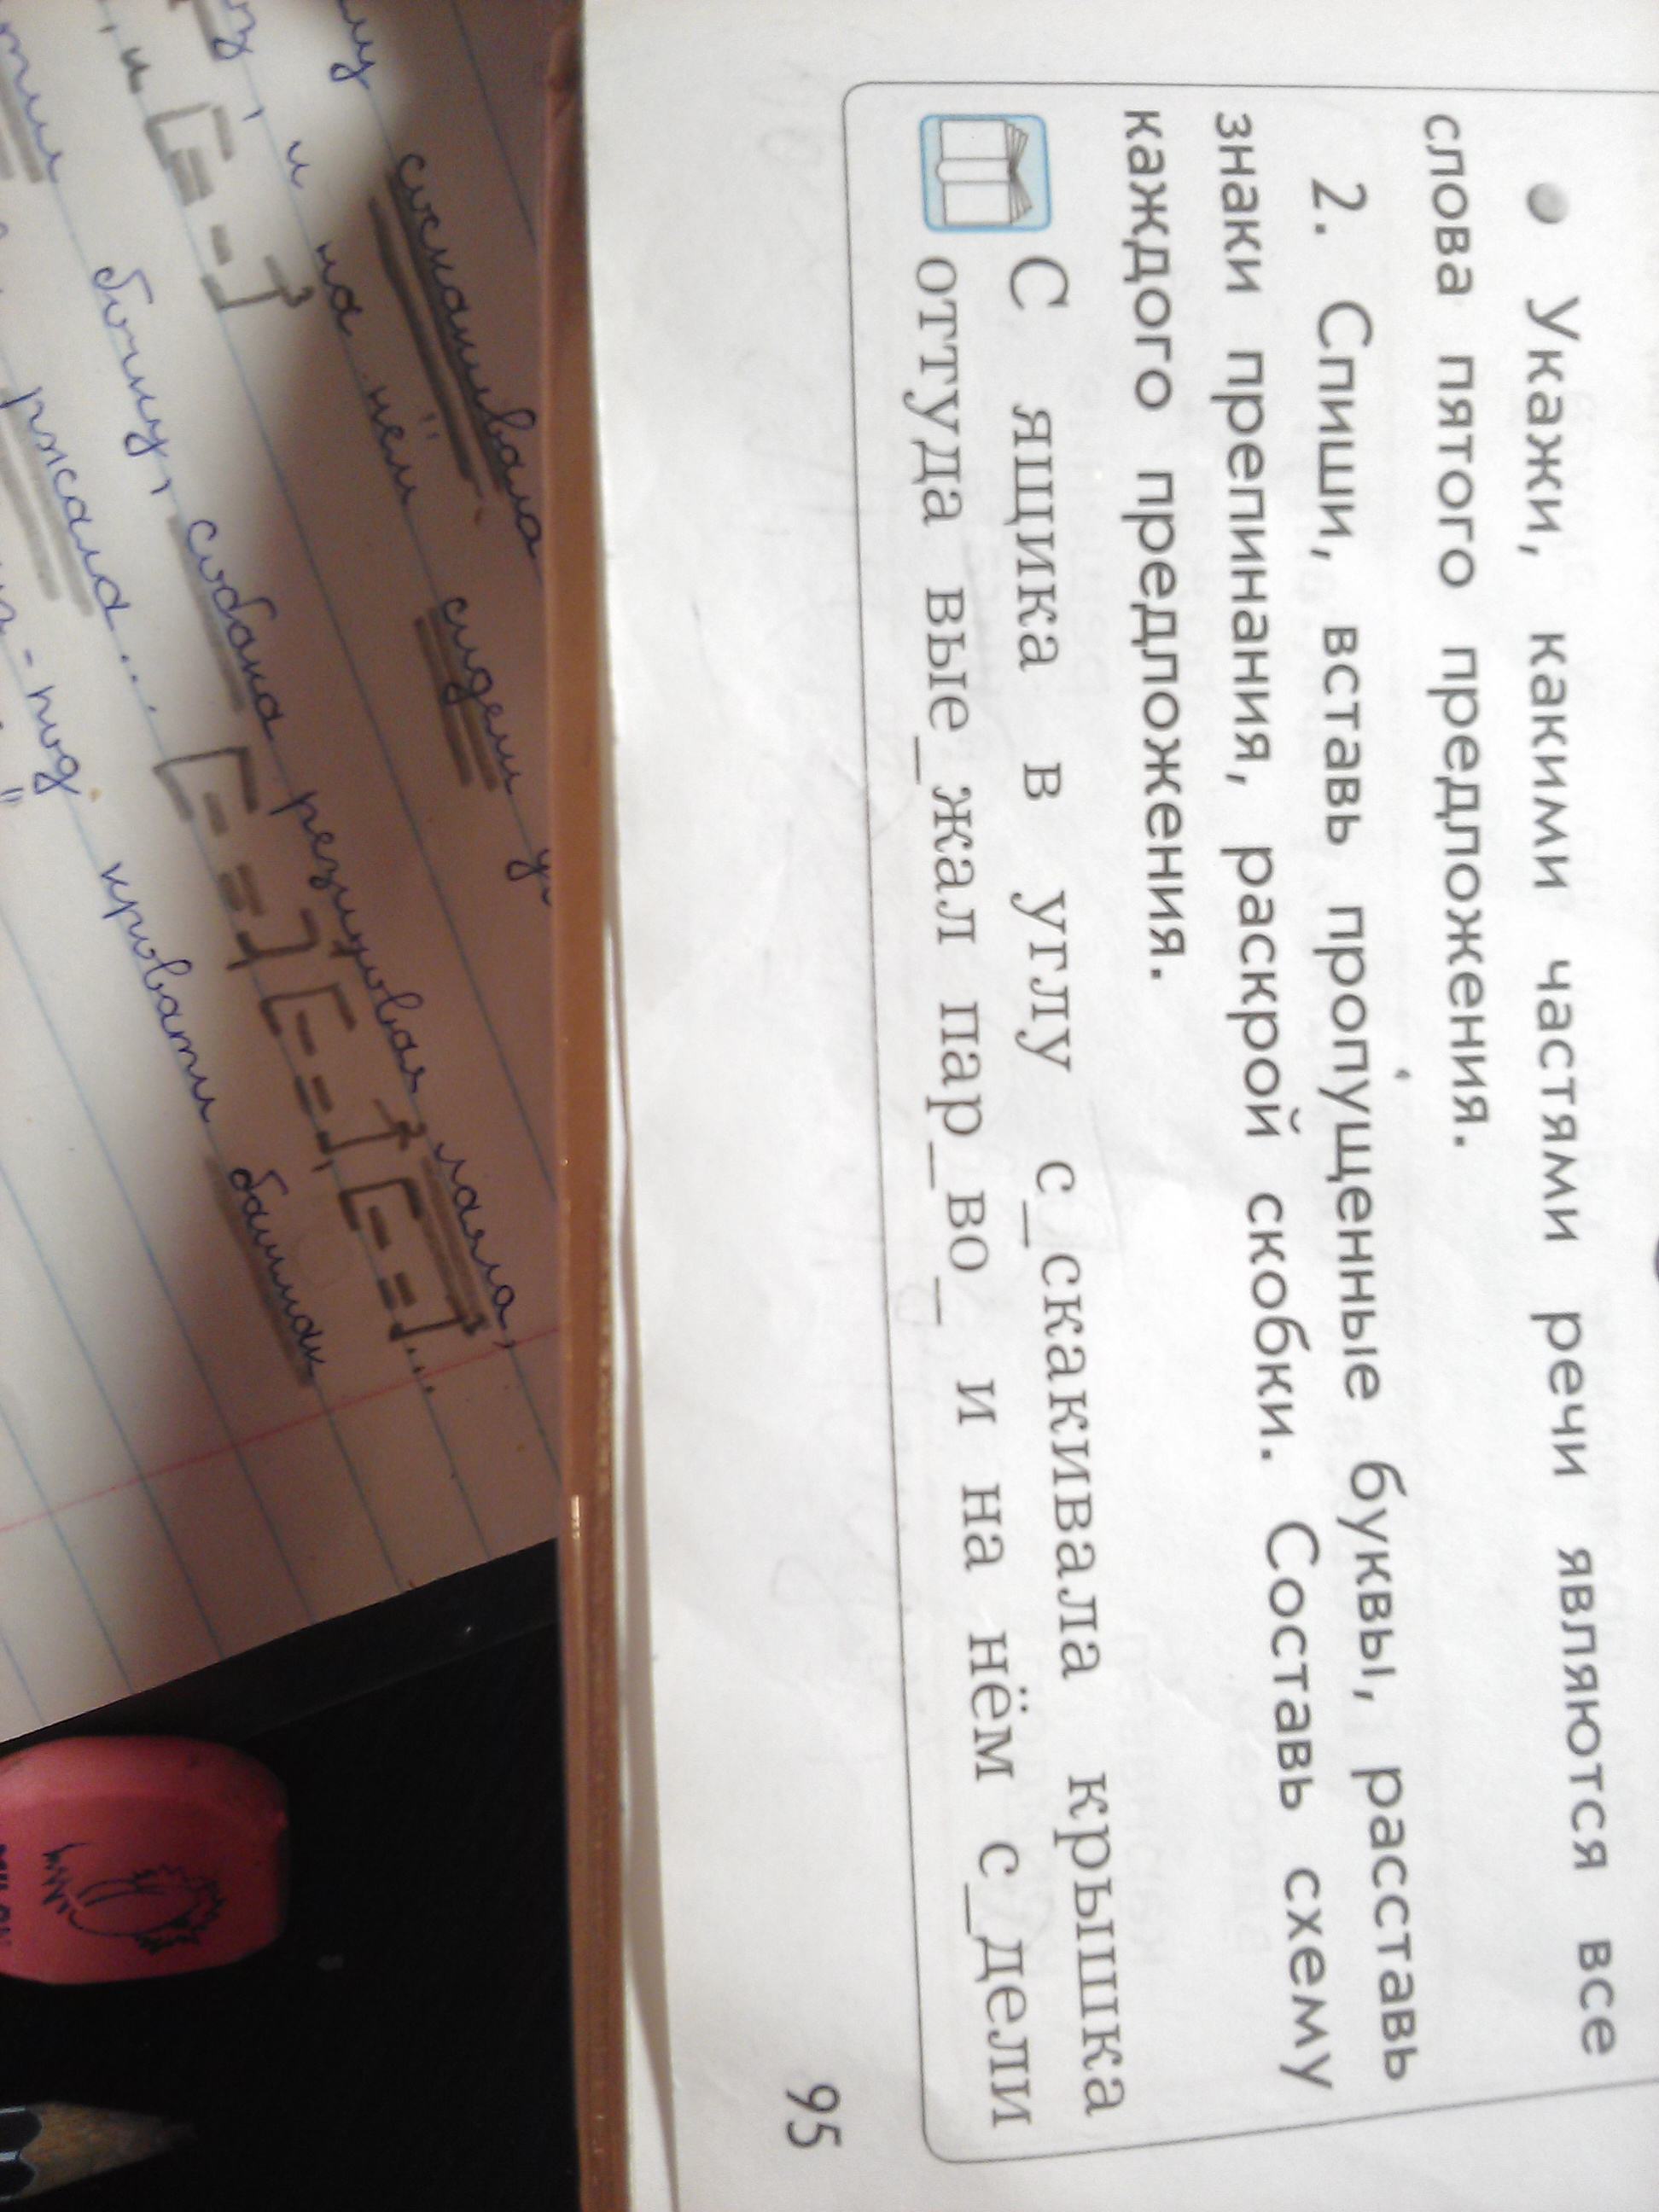 • Укажи, какими частями речи являются все
слова пятого предложения.
2. Спиши, вставь пропущенные буквы, расставь
знаки препинания, раскрой скобки. Составь схему
каждого предложения.
С ящика в углу с_скакивала крышка
оттуда вые_жал пар_во_ и на нём с_дели
95
соскакивала
и на нём сидели
, и [= - -]³
бочку, собака резиновая лаяла,
ржала... [- =]¹ [- =]², [- =]³...
-под кровати башмак